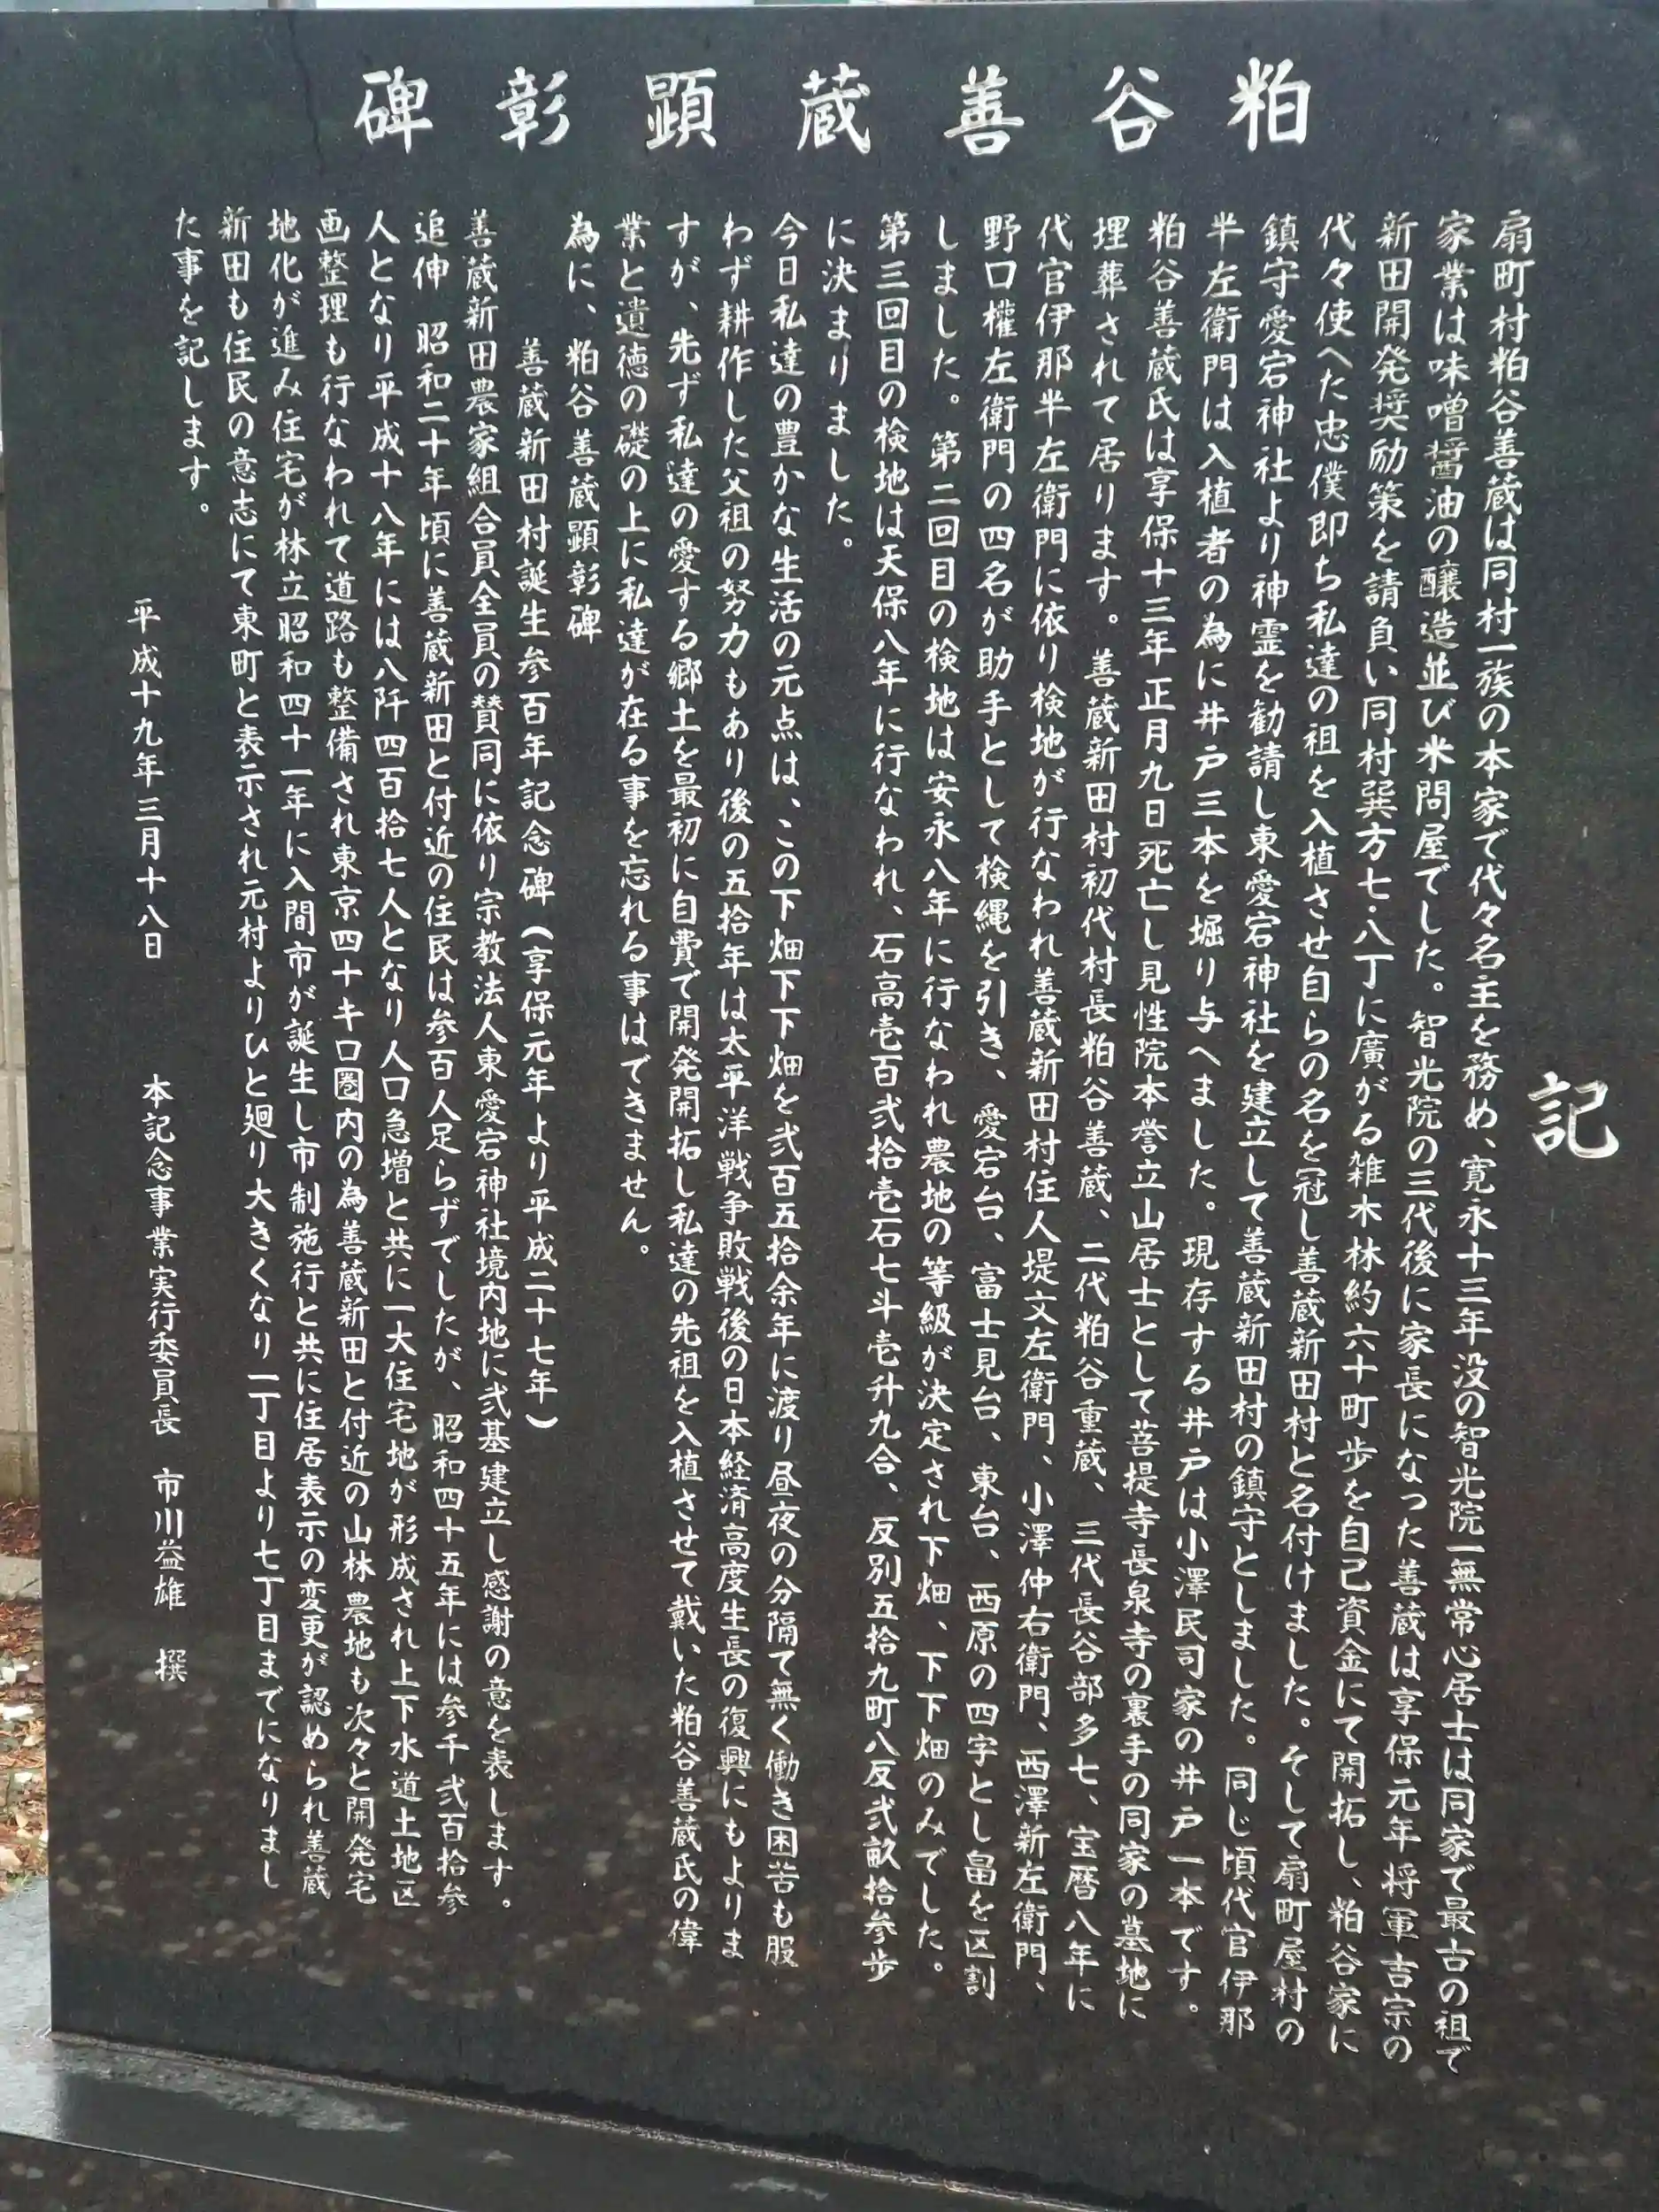 粕谷善蔵顕彰碑
記
扇町村粕谷善蔵は同村一族の本家で代々名主を務め、寛永十三年没の智光院一無常心居士は同家で最古の祖で
家業は味噌醤油の醸造並び米問屋でした。智光院の三代後に家長になった善蔵は享保元年将軍吉宗の
新田開発奨励策を請負い同村巽方七・八丁に廣がる雑木林約六十町歩を自己資金にて開拓し、粕谷家に
代々使へた忠僕即ち私達の祖を入植させ自らの名を冠し善蔵新田村と名付けました。そして扇町屋村の
鎮守愛宕神社より神霊を勧請し東愛宕神社を建立して善蔵新田村の鎮守としました。同じ頃代官伊那
半左衛門は入植者の為に井戸三本を堀り与へました。現存する井戸は小澤民司家の井戸一本です。
粕谷善蔵氏は享保十三年正月九日死亡し見性院本誉立山居士として菩提寺長泉寺の裏手の同家の墓地に
埋葬されて居ります。善蔵新田村初代村長粕谷善蔵、二代粕谷重蔵、三代長谷部多七、宝暦八年に
代官伊那半左衛門に依り検地が行なわれ善蔵新田村住人堤文左衛門、小澤仲右衛門、西澤新左衛門、
野口權左衛門の四名が助手として検縄を引き、愛宕台、富士見台、東台、西原の四字とし畠を区割
しました。第二回目の検地は安永八年に行なわれ農地の等級が決定され下畑、下下畑のみでした。
第三回目の検地は天保八年に行なわれ、石高壱百弐拾壱石七斗壱升九合、反別五拾九町八反弐畝拾参歩
に決まりました。
今日私達の豊かな生活の元点は、この下畑下下畑を弐百五拾余年に渡り昼夜の分隔て無く働き困苦も服
わず耕作した父祖の努力もあり後の五拾年は太平洋戦争敗戦後の日本経済高度生長の復興にもよりま
すが、先ず私達の愛する郷土を最初に自費で開発開拓し私達の先祖を入植させて戴いた粕谷善蔵氏の偉
業と遺徳の礎の上に私達が在る事を忘れる事はできません。
為に、粕谷善蔵顕彰碑
善蔵新田村誕生参百年記念碑(享保元年より平成二十七年)
善蔵新田農家組合員全員の賛同に依り宗教法人東愛宕神社境内地に弐基建立し感謝の意を表します。
追伸 昭和二十年頃に善蔵新田と付近の住民は参百人足らずでしたが、昭和四十五年には参千弐百拾参
人となり平成十八年には八阡四百拾七人となり人口急増と共に一大住宅地が形成され上下水道土地区
画整理も行なわれて道路も整備され東京四十キロ圏内の為善蔵新田と付近の山林農地も次々と開発宅
地化が進み住宅が林立昭和四十一年に入間市が誕生し市制施行と共に住居表示の変更が認められ善蔵
新田も住民の意志にて東町と表示され元村よりひと廻り大きくなり一丁目より七丁目までになりまし
た事を記します。
平成十九年三月十八日 本記念事業実行委員長 市川益雄 撰